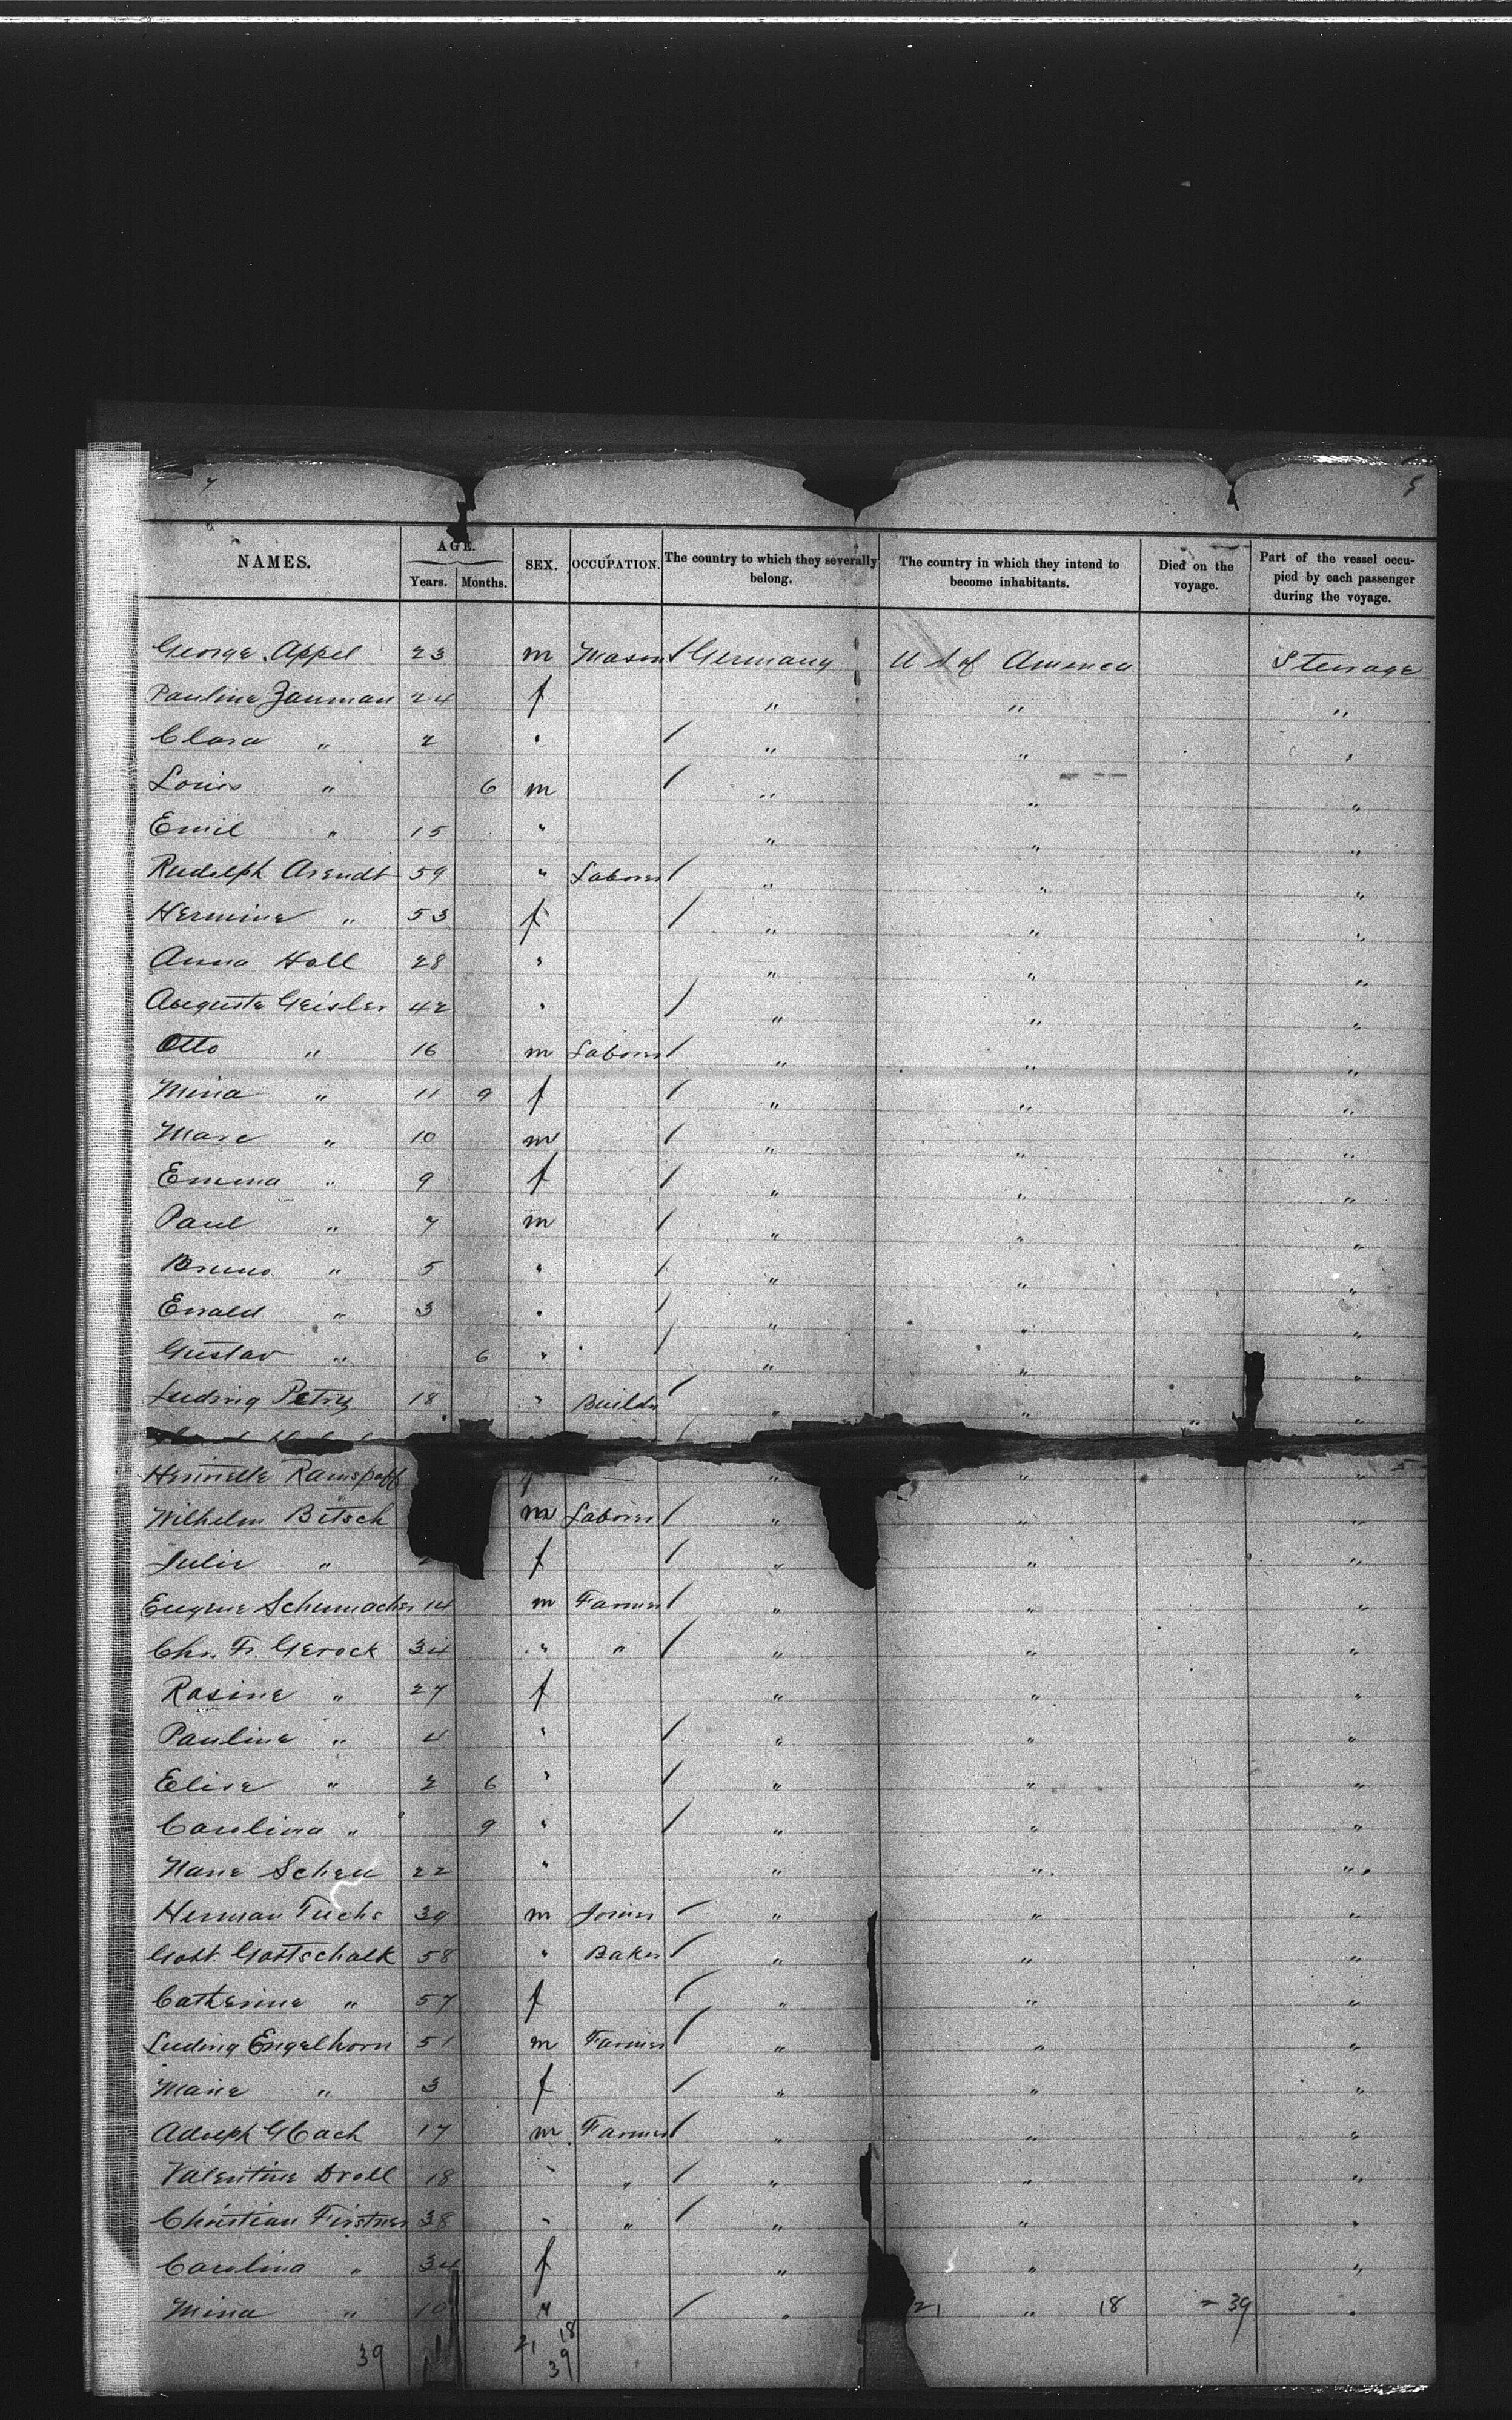 7 5
NAMES. AGE. Years. Months. SEX. OCCUPATION. The country to which they severally belong. The country in which they intend to become inhabitants. Died on the voyage. Part of the vessel occupied by each passenger during the voyage.
George Appel 23 m Mason / Germany U S of America Steerage
Pauline Zauman 24 f " " "
Clara " 2 " / " " "
Louis " 6 m / " " "
Emil " 15 " " " "
Rudolph Arendt 59 " Laborer / " " "
Hermine " 53 f / " " "
Anna Holl 28 " " " "
Auguste Geisler 42 " / " " "
Otto " 16 m Laborer / " " "
Mina " 11 9 f / " " "
Marc " 10 m / " " "
Emma " 9 f / " " "
Paul " 7 m / " " "
Bruno " 5 " / " " "
Ewald " 3 " / " " "
Gustav " 6 " / " " "
Ludwig Petry 18 " Builder / " " " "
Henriette Ramspoff f " " "
Wilhelm Bitsch m Laborer / " " "
Julie " 2 f / " " "
Eugene Schumacher 14 m Farmer / " " "
Chr. Fr. Gerock 34 " " / " " "
Rosine " 27 f " " "
Pauline " 4 " / " " "
Elise " 2 6 " / " " "
Carolina " 9 " / " " "
Nane Scheu 22 " " " "
Herman Fuchs 39 m Joiner / " " "
Gottl. Gottschalk 58 " Baker / " " "
Catherine " 57 f / " " "
Ludwig Engelhorn 51 m Farmer / " " "
Marie " 3 f / " " "
Adolph Gbach 17 m Farmer / " " "
Valentine Droll 18 " " / " " "
Christian Firstner 38 " " / " " "
Carolina " 34 f " " "
Mina " 10 " / " 21 " 18 = 39 "
39 21 18
39